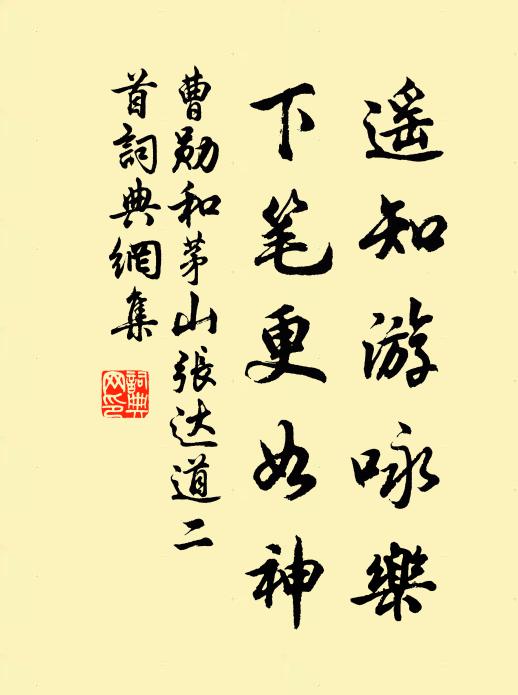 遥知游咏樂
下笔更如神
曹勋和茅山張达道二
首詞典網集
詞典
网印